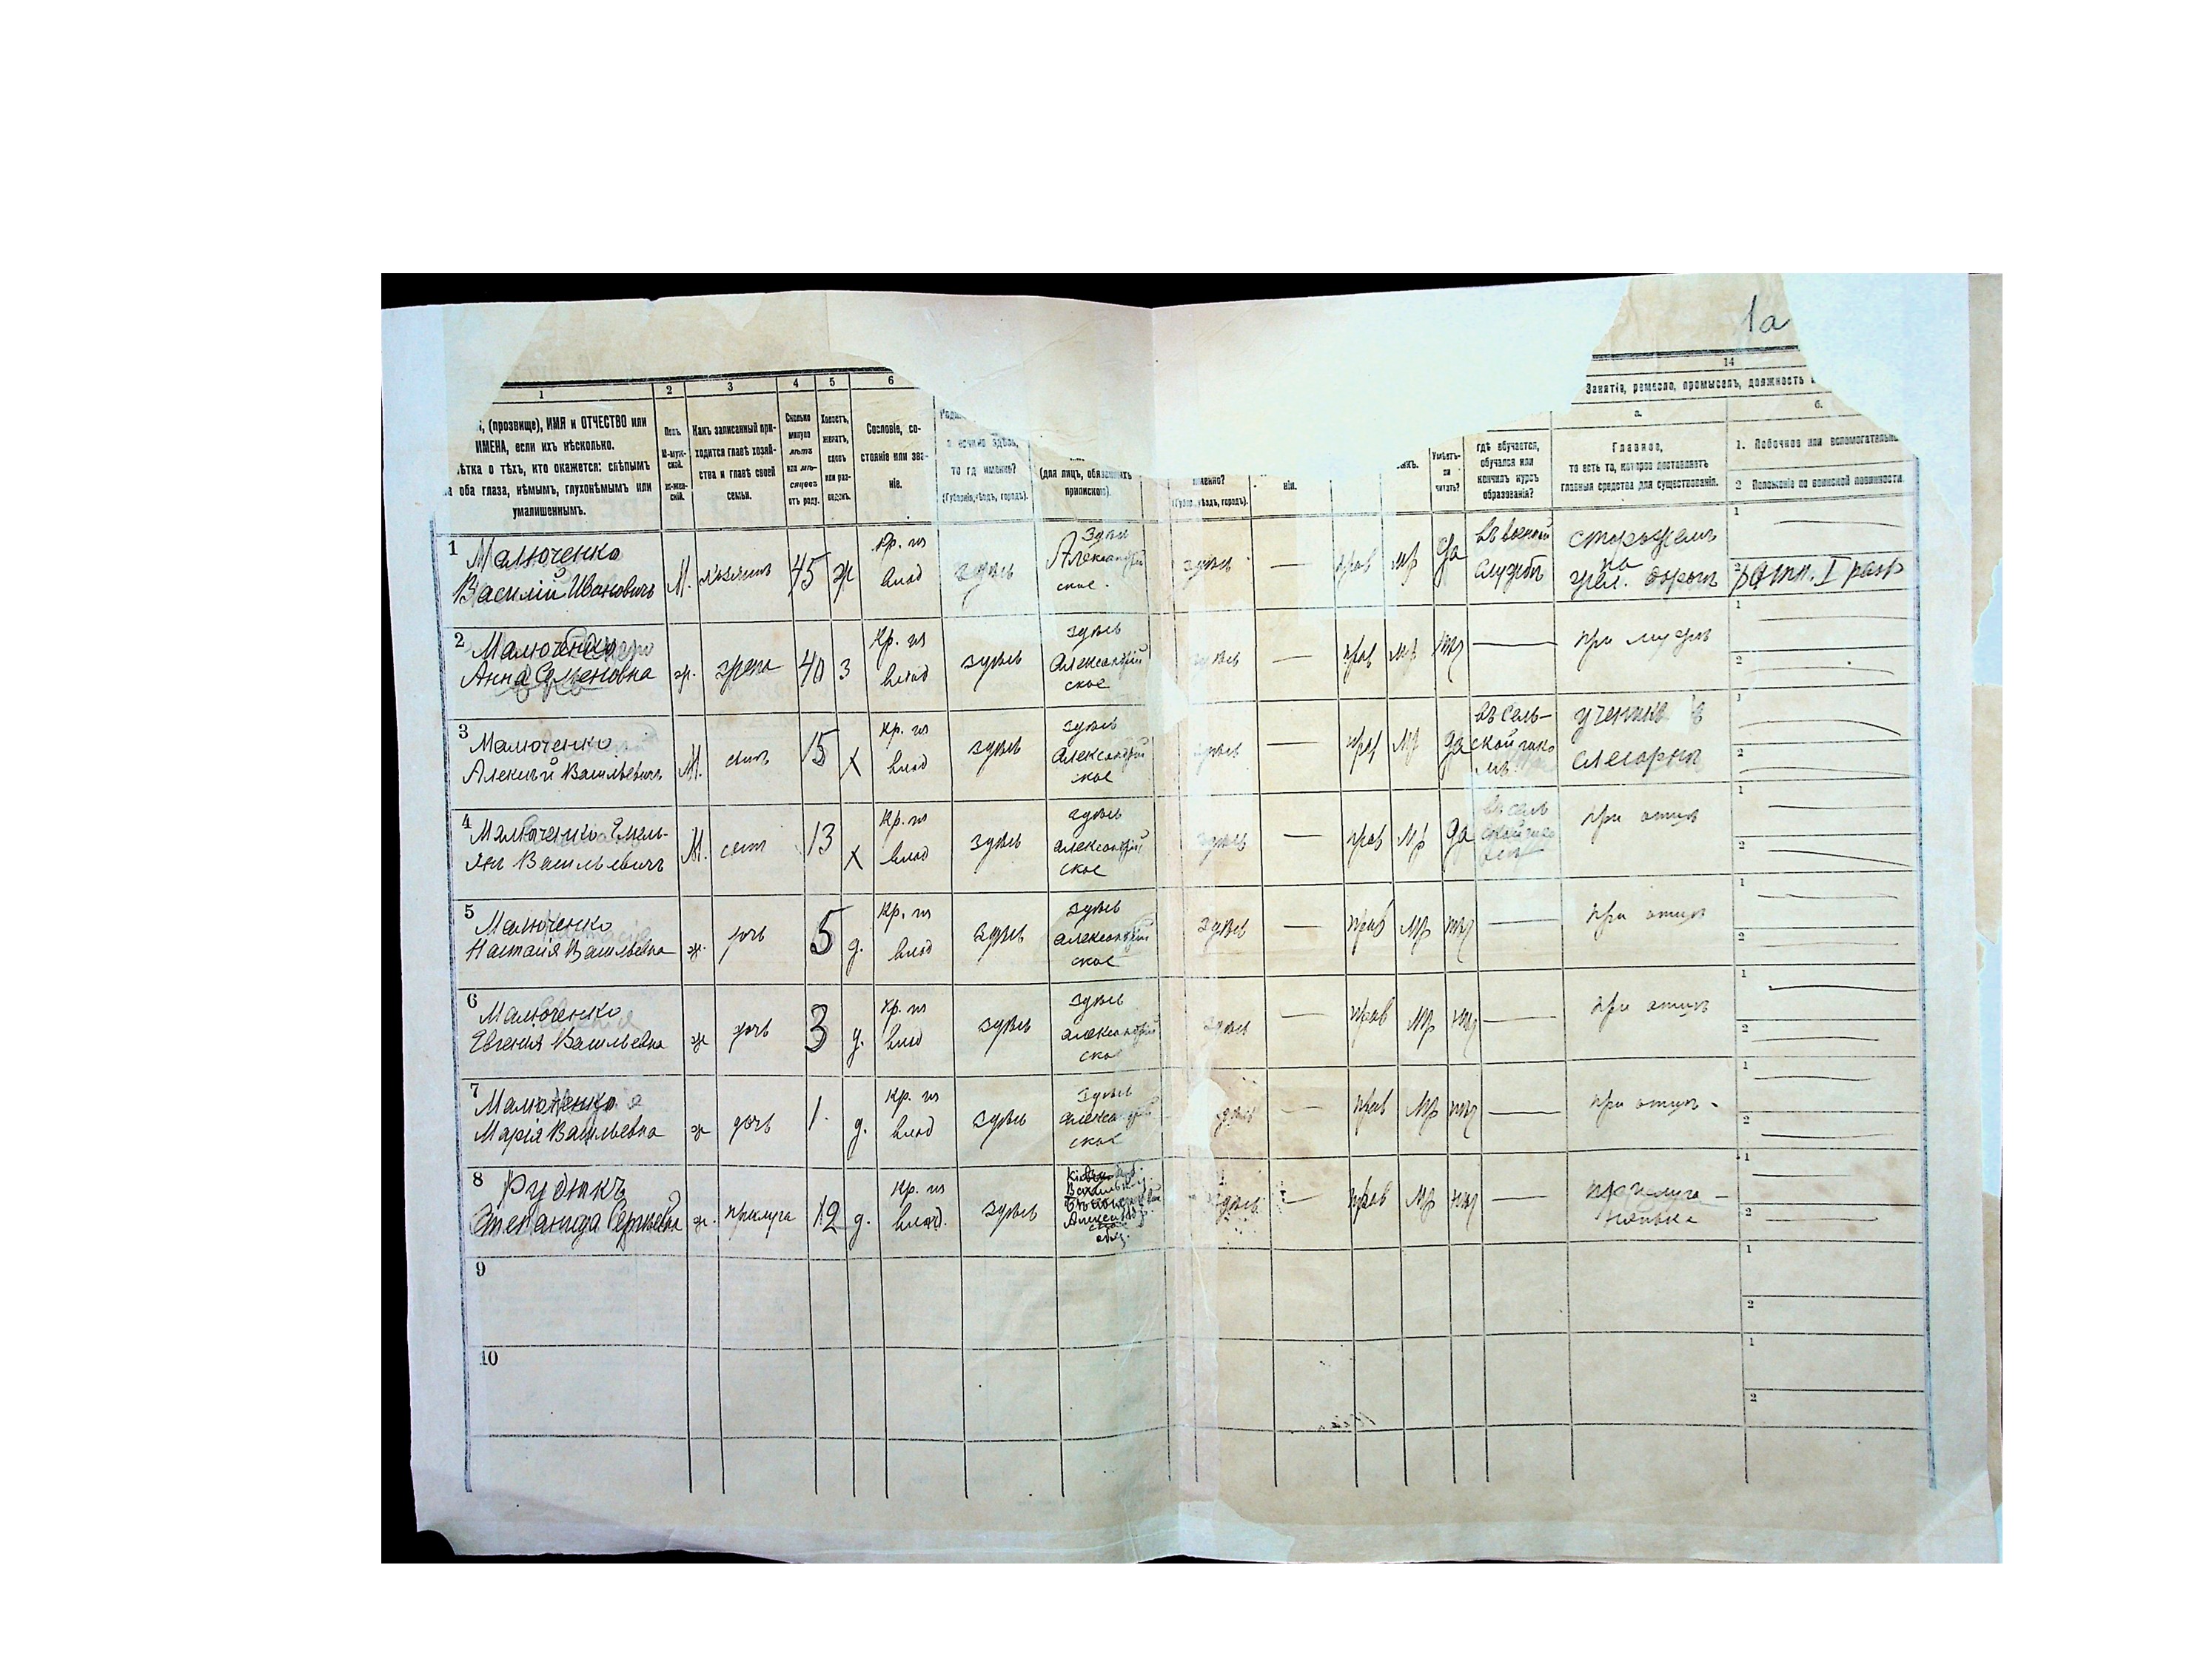 1а
1 2 3 4 5 6 14
Занятіе, ремесло, промыселъ, должность
(прозвище), ИМЯ и ОТЧЕСТВО или
ИМЕНА, если ихъ нѣсколько.
о тѣхъ, кто окажется: слѣпымъ
оба глаза, нѣмымъ, глухонѣмымъ или
умалишеннымъ.
Полъ.
М-муж-
ской.
ж-жен-
скій.
Какъ записанный при-
ходится главѣ хозяй-
ства и главѣ своей
семьи.
Сколько
минуло
лѣтъ
или мѣ-
сяцевъ
отъ роду.
Холостъ,
женатъ,
вдовъ
или раз-
веденъ.
Сословіе, со-
стояніе или зва-
ніе.
то гдѣ именно?
(Губернія, уѣздъ, городъ).
(для лицъ, обязанныхъ
припискою).
именно?
(Губер., уѣздъ, городъ).
ніи.
Умѣетъ-
ли
читать?
гдѣ обучается,
обучался или
кончилъ курсъ
образованія?
а.
Главное,
то есть то, которое доставляетъ
главныя средства для существованія.
б.
1. Побочное или вспомогательное
2 Положеніе по воинской повинности.
1 Малюченко
Василій Ивановичъ М. хозяинъ 45 ж Кр. из влад здѣсь здѣсь Александрій ское. здѣсь — прав мр да въ военной службѣ сторожемъ на жел. дорогѣ
2 Малюченко
Анна Семеновна ж. жена 40 з Кр. из влад здѣсь здѣсь Александрій ское здѣсь — прав мр нѣт — при мужѣ
3 Малюченко
Алексѣй Васильевичъ М. сынъ 15 х Кр. из влад здѣсь здѣсь Александрій ское здѣсь — прав мр да въ сель- ской шко лѣ ученикъ в слесарнѣ
4 Малюченко Емель-
янъ Васильевичъ М. сынъ 13 х Кр. из влад здѣсь здѣсь Александрій ское здѣсь — прав мр да въ сель ской шко при отцѣ
5 Малюченко
Настасія Васильевна ж. дочь 5 д. Кр. из влад здѣсь здѣсь Александрій ское здѣсь — прав мр нѣт — при отцѣ
6 Малюченко
Евгенія Васильевна ж дочь 3 д. Кр. из влад здѣсь здѣсь Александрій ское здѣсь — прав мр нѣт — при отцѣ
7 Малюченко
Марія Васильевна ж дочь 1 д. Кр. из влад здѣсь здѣсь ское здѣсь — прав мр нѣт — при отцѣ
8 Рудюкъ
Степанида Сергѣевна ж. прислуга 12 д. Кр. из влад. здѣсь здѣсь — прав мр нѣт — прислуга – нянька
9
10